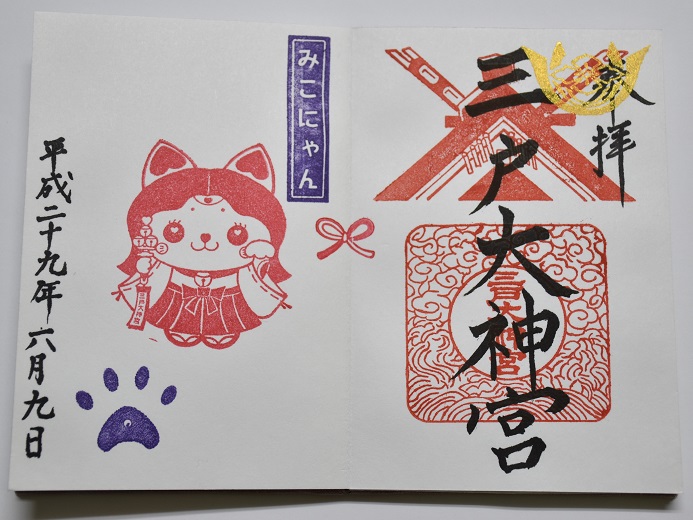 奉拝
三戸大神宮
三戸大神宮
みこにゃん
三戸大神宮
平成二十九年六月九日